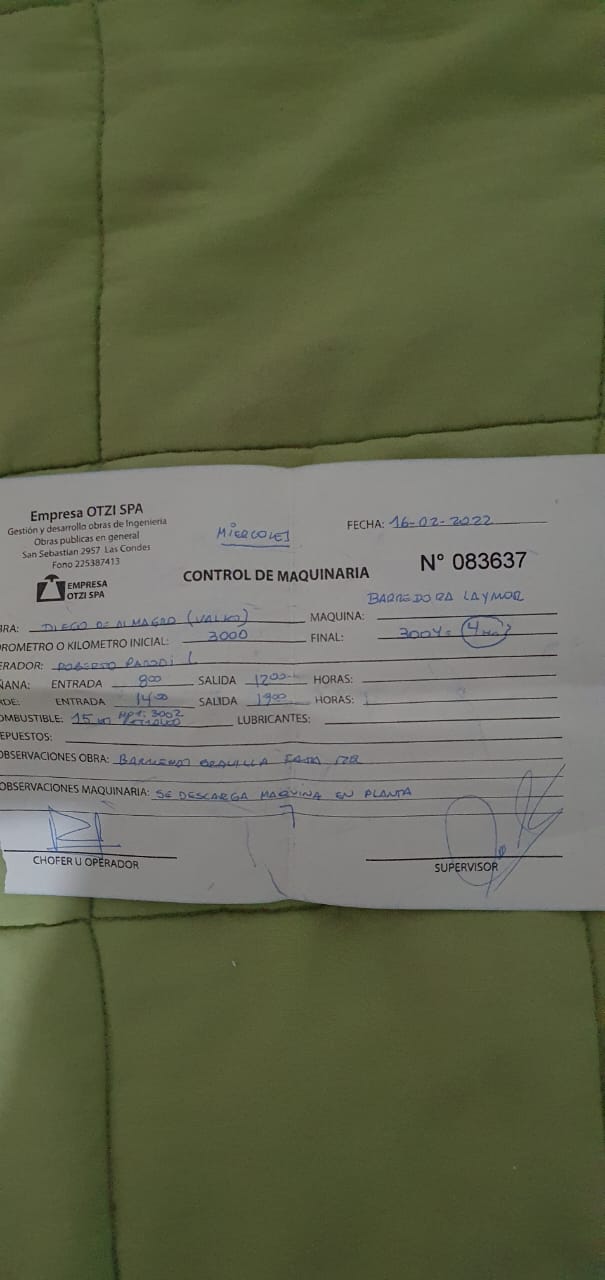 Empresa OTZI SPA
Gestión y desarrollo obras de Ingenieria
Obras publicas en general
San Sebastian 2957 Las Condes
Fono 225387413
EMPRESA
OTZI SPA
MIERCOLES
FECHA: 16-02-2022
CONTROL DE MAQUINARIA
N° 083637
BARREDORA LAYMOR
BRA: DIEGO DE ALMAGRO
MAQUINA:
OROMETRO O KILOMETRO INICIAL: 3000
FINAL: 3004= 4
ERADOR: ROBERTO
ÑANA: ENTRADA 800 SALIDA 1200 HORAS:
RDE: ENTRADA 1400 SALIDA 1900 HORAS:
OMBUSTIBLE: 15 3002
LUBRICANTES:
EPUESTOS:
OBSERVACIONES OBRA: BARRIENDO GRAVILLA
OBSERVACIONES MAQUINARIA: SE DESCARGA MAQUINA EN PLANTA
CHOFER U OPERADOR
SUPERVISOR